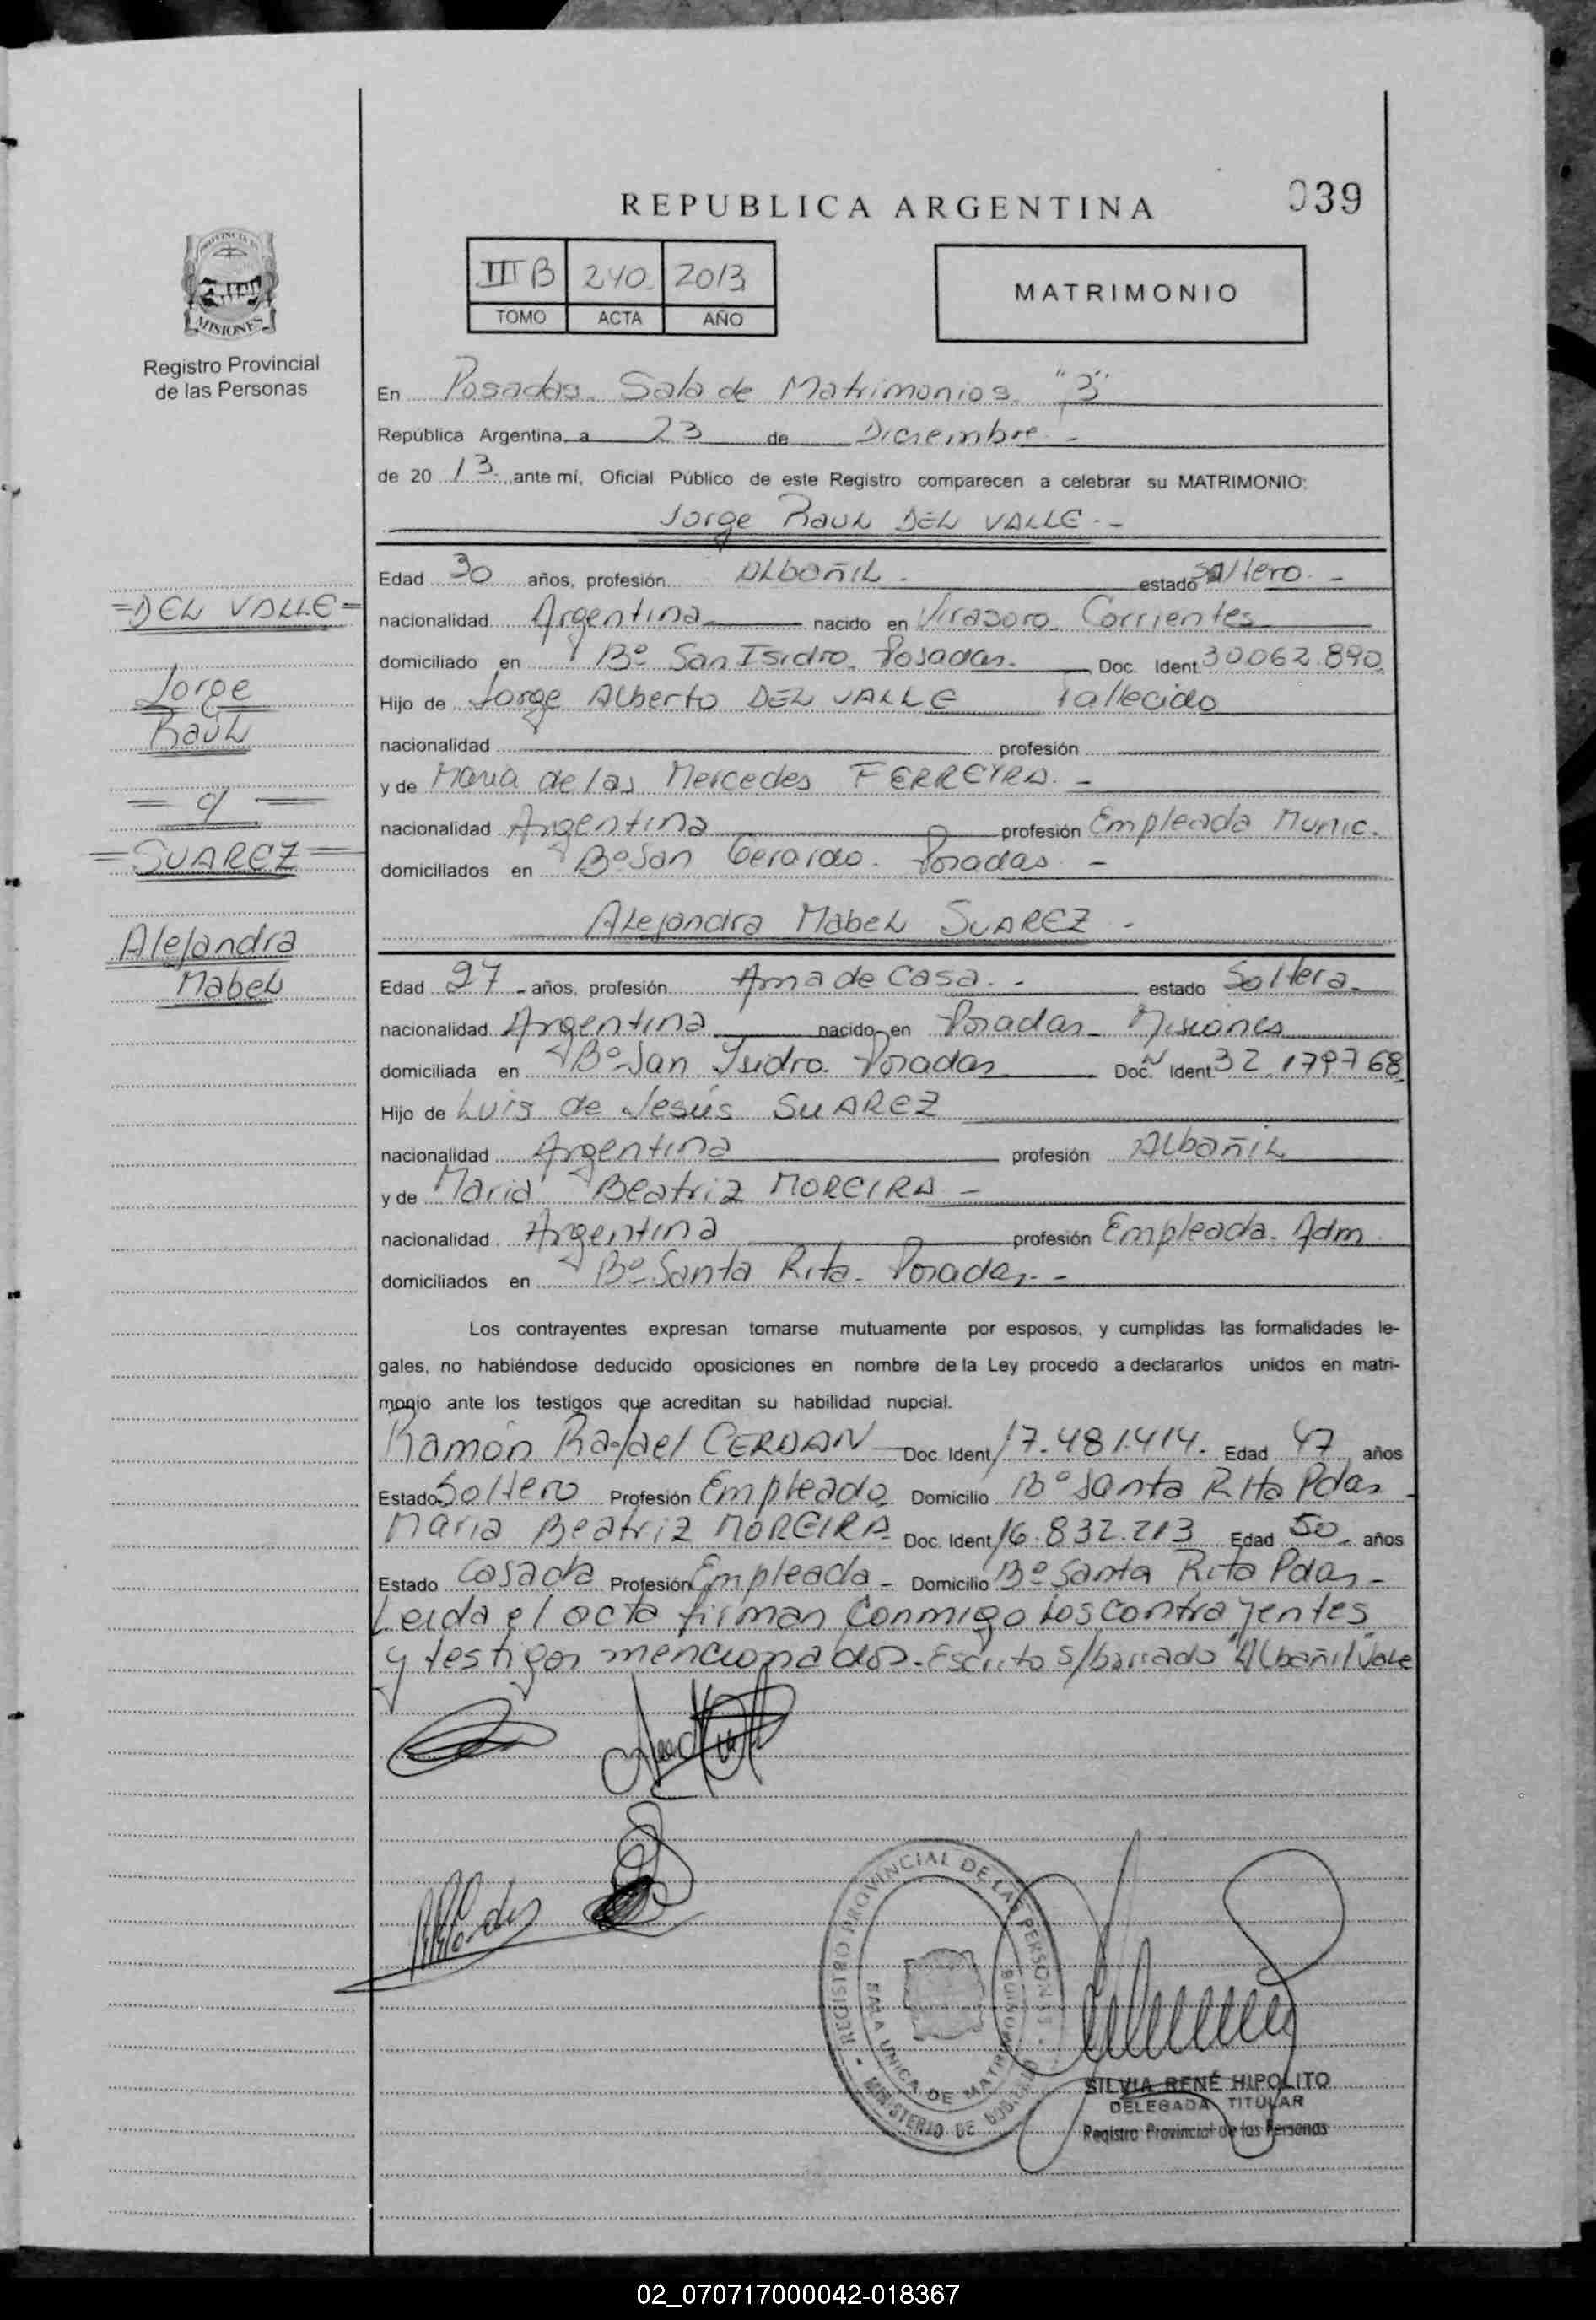 REPUBLICA ARGENTINA
039
PROVINCIA DE
MISIONES
Registro Provincial
de las Personas
III B 240 2013
TOMO ACTA AÑO
MATRIMONIO
En Posadas. Sala de Matrimonios. "3"
República Argentina, a 23 de Diciembre -
de 20 13 ante mí, Oficial Público de este Registro comparecen a celebrar su MATRIMONIO:
Jorge Raul DEL VALLE. -
Edad 30 años, profesión Albañil - estado soltero. -
nacionalidad Argentina nacido en Virasoro. Corrientes
domiciliado en Bº San Isidro. Posadas. Doc. Ident. 30.062.890
Hijo de Jorge Alberto DEL VALLE fallecido
nacionalidad profesión
y de Maria de las Mercedes FERREYRA. -
nacionalidad Argentina profesión Empleada Munic.
domiciliados en Bº San Gerardo. Posadas -
Alejandra Mabel SUAREZ -
Edad 27 - años, profesión Ama de Casa. - estado Soltera
nacionalidad Argentina nacido en Posadas - Misiones
domiciliada en Bº San Isidro. Posadas Doc. Ident. 32.179768
Hijo de Luis de Jesús SUAREZ
nacionalidad Argentina profesión Albañil
y de Maria Beatriz MOREIRA -
nacionalidad Argentina profesión Empleada. Adm.
domiciliados en Bº Santa Rita. Posadas. -
Los contrayentes expresan tomarse mutuamente por esposos, y cumplidas las formalidades le-
gales, no habiéndose deducido oposiciones en nombre de la Ley procedo a declararlos unidos en matri-
monio ante los testigos que acreditan su habilidad nupcial.
Ramón Rafael CERDAN Doc. Ident. 17.481.414. Edad 47 años
Estado Soltero Profesión Empleado Domicilio Bº Santa Rita Pdas
Maria Beatriz MOREIRA Doc. Ident. 16.832.213 Edad 50 años
Estado Casada Profesión Empleada - Domicilio Bº Santa Rita Pdas -
Leida el acta firman conmigo los contrayentes
y testigos mencionados. Escrito s/borrado "Albañil" Vale
=DEL VALLE=
Jorge
Raúl
= y =
=SUAREZ=
Alejandra
Mabel
REGISTRO PROVINCIAL DE LAS PERSONAS
SALA UNICA DE MATRIMONIOS
MINISTERIO DE GOBIERNO
SILVIA RENÉ HIPOLITO
DELEGADA TITULAR
Registro Provincial de las Personas
02_070717000042-018367